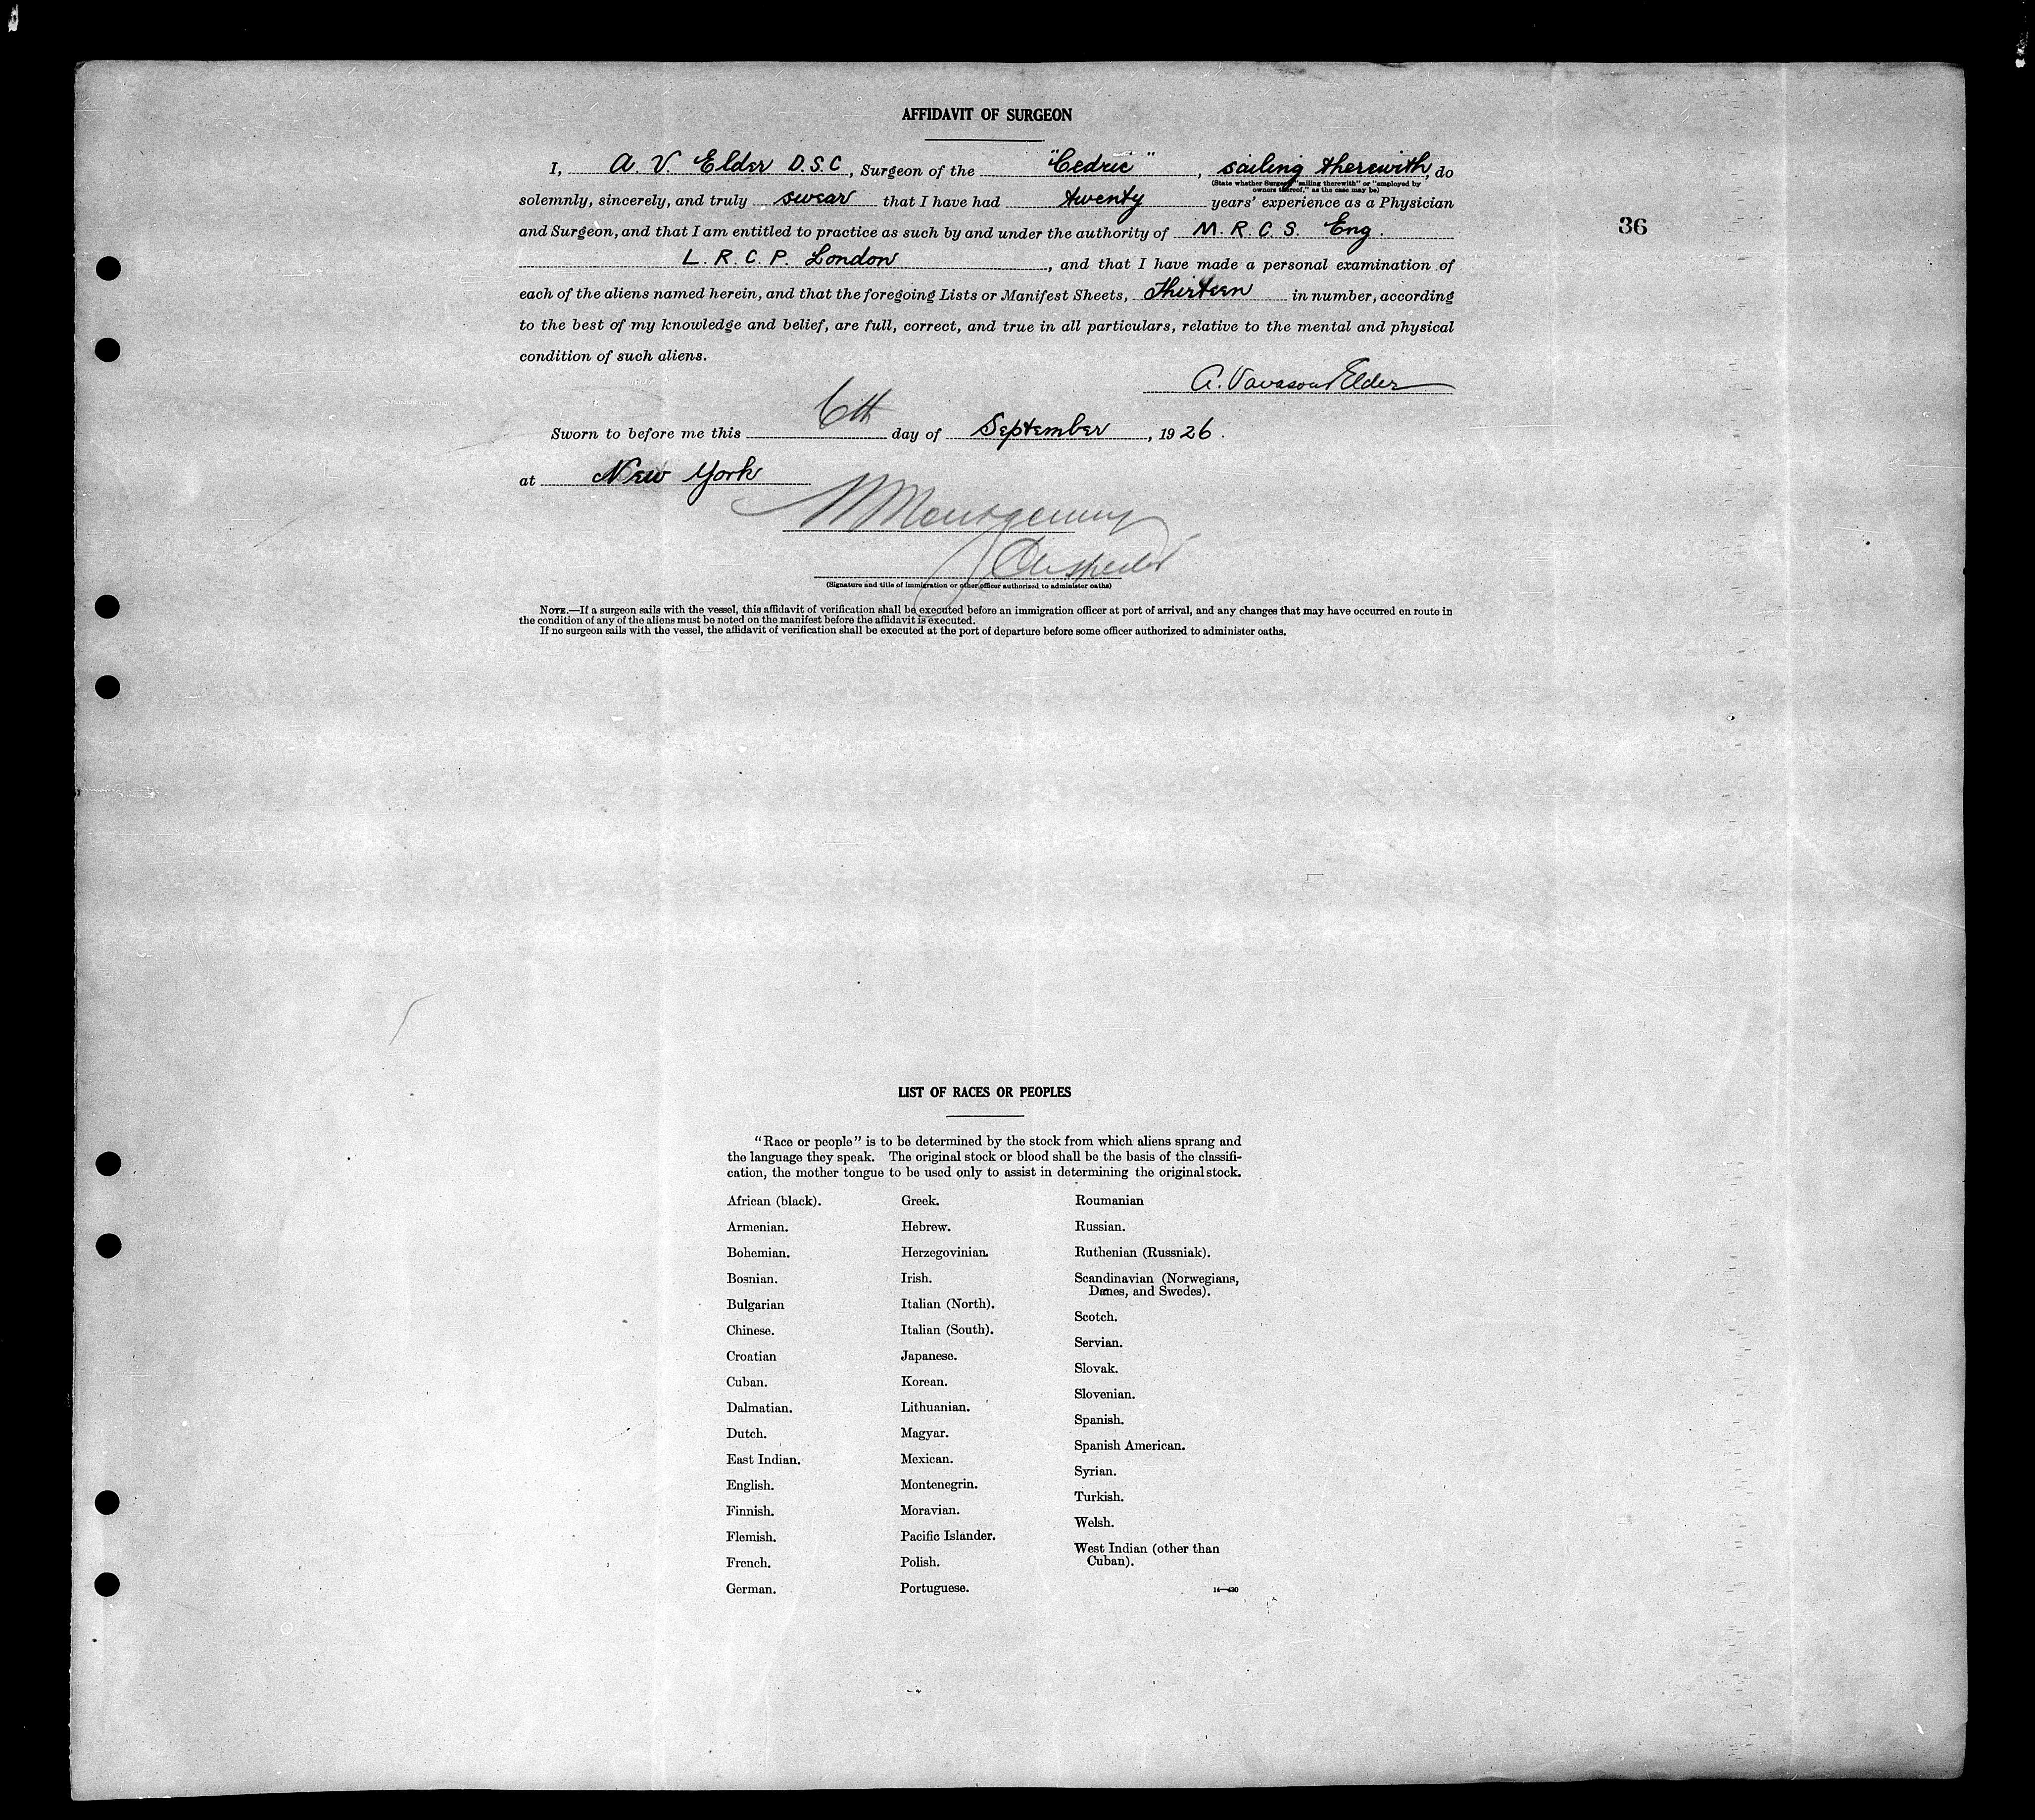 AFFIDAVIT OF SURGEON
36
I, A. V. Elder D.S.C, Surgeon of the "Cedric", sailing therewith, do
(State whether Surgeon "sailing therewith" or "employed by
owners thereof," as the case may be)
solemnly, sincerely, and truly swear that I have had twenty years' experience as a Physician
and Surgeon, and that I am entitled to practice as such by and under the authority of M. R. C. S. Eng.
L. R. C. P. London, and that I have made a personal examination of
each of the aliens named herein, and that the foregoing Lists or Manifest Sheets, Thirteen in number, according
to the best of my knowledge and belief, are full, correct, and true in all particulars, relative to the mental and physical
condition of such aliens.
A. Vavasour Elder
Sworn to before me this 6th day of September, 1926.
at New York
Montgomery
(Signature and title of Immigration or other officer authorized to administer oaths)
NOTE.—If a surgeon sails with the vessel, this affidavit of verification shall be executed before an immigration officer at port of arrival, and any changes that may have occurred en route in
the condition of any of the aliens must be noted on the manifest before the affidavit is executed.
If no surgeon sails with the vessel, the affidavit of verification shall be executed at the port of departure before some officer authorized to administer oaths.
LIST OF RACES OR PEOPLES
"Race or people" is to be determined by the stock from which aliens sprang and
the language they speak. The original stock or blood shall be the basis of the classifi-
cation, the mother tongue to be used only to assist in determining the original stock.
African (black).
Armenian.
Bohemian.
Bosnian.
Bulgarian
Chinese.
Croatian
Cuban.
Dalmatian.
Dutch.
East Indian.
English.
Finnish.
Flemish.
French.
German.
Greek.
Hebrew.
Herzegovinian.
Irish.
Italian (North).
Italian (South).
Japanese.
Korean.
Lithuanian.
Magyar.
Mexican.
Montenegrin.
Moravian.
Pacific Islander.
Polish.
Portuguese.
Roumanian
Russian.
Ruthenian (Russniak).
Scandinavian (Norwegians,
Danes, and Swedes).
Scotch.
Servian.
Slovak.
Slovenian.
Spanish.
Spanish American.
Syrian.
Turkish.
Welsh.
West Indian (other than
Cuban).
14—430